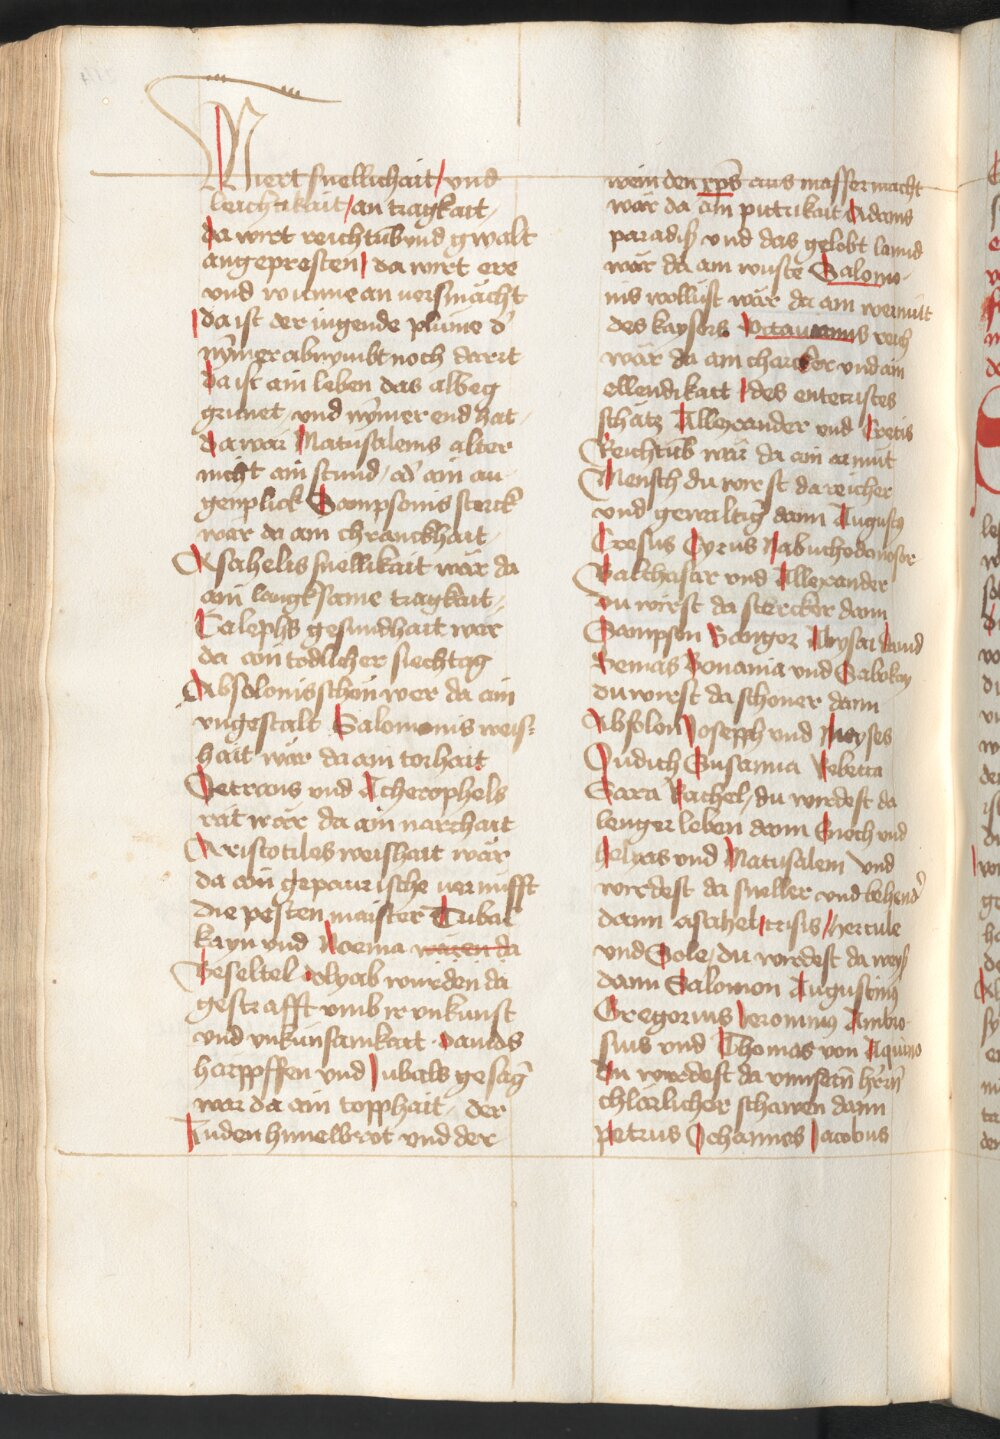 Wert snellichait / und
leichtikait / an tragkait
da wirt reichtūb und gwalt
angepresten / da wirt ere
und wunne an uersmächt
da ist der iugende plume d'
nȳmer abnymbt noch dorrt
da ist ain leben das albeg
grunet und nȳmer end hat
Da wär Matusalems alter
nicht ain stund / ad' ain au
genplick Sampsonis sterck
wär da ain chranckhait
Asahelis snellikait wär da
ain langksame tragkait
Calephs gesundhait wär
da ain todlicher siechtag
Absolonis schön wer da ain
ungestalt Salomonis weis=
hait wär da ain torhait
Petrans und Acherophels
rät wär da ain narrhait
Aristotiles weishait wär
da ain gepaurische uernufft
die pesten maister Tubal
kayn und Noema wären da
Beseltel Olyab wurden da
gestrafft umb ir unkunst
und unkunsamkait Dauids
harpffen und Jubals gesāg
wär da ain topphait der
Juden himelbrot und der
wein den xp̄s aus wasser macht
wär da ain pittrikait Adams
paradiß und das gelobt lannd
wär da ain wüste Salomo
nis wollust wär da ain wermüt
des kaysers Octauianus reich
wär da ain charcker und ain
ellendikait / des entecristes
schätz Allexander und Cresis
Reichtūb wär da ain armut
Mensch du wirst da reicher
und gewaltig dann Augustus
Cresus Cyrus Nabuchodonosor
Balthasar und Allexander
du wirst da stercker dann
Sampson Sangor Abysai dauid
Semais Bonania und Sabokay
du wirst da schoner dann
Absolon Joseph und Moyses
Judich Susanna Rebecca
Sara Rachel / du wirdest da
lenger leben dann Enoch und
helyas und Matusalem und
wirdest da sneller und behend'
dann asahel / crisis / hercule
und Sole / du wirdest da weyß
dann Salomon Augustinus
Gregorius Jeronimus Ambro
sius und Thomas von Aquino
Du wirdest da unnsern̄ herrn̄
chlärlicher schawen dann
Petrus Johannes Jacobus